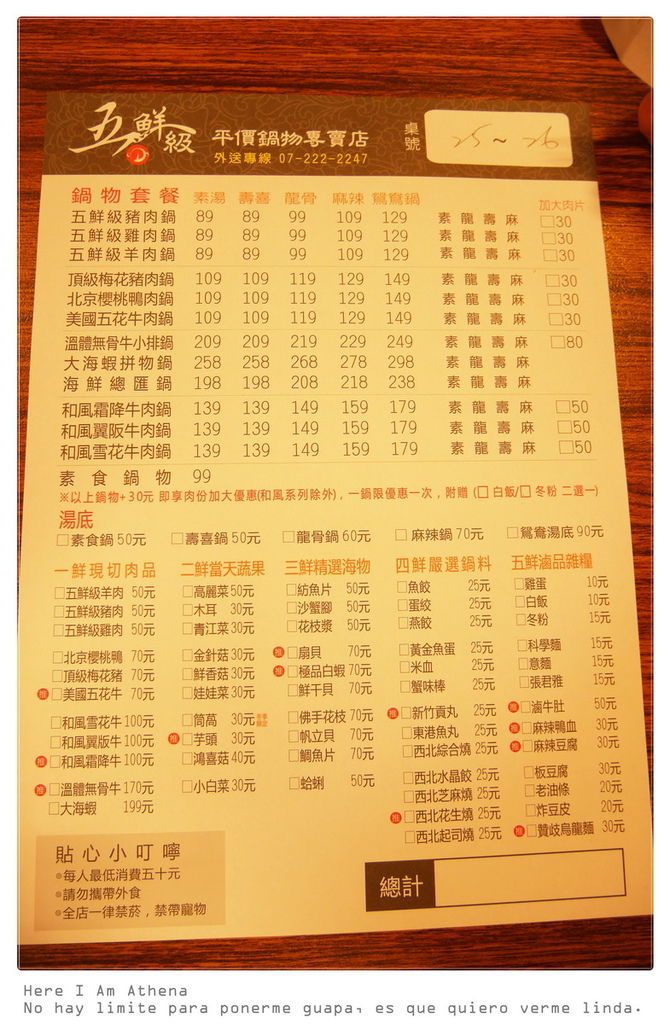 五鮮級 平價鍋物專賣店
外送專線 07-222-2247
桌號 25~26
鍋物套餐 素湯 壽喜 龍骨 麻辣 鴛鴦鍋 加大肉片
五鮮級豬肉鍋 89 89 99 109 129 素 龍 壽 麻 □30
五鮮級雞肉鍋 89 89 99 109 129 素 龍 壽 麻 □30
五鮮級羊肉鍋 89 89 99 109 129 素 龍 壽 麻 □30
頂級梅花豬肉鍋 109 109 119 129 149 素 龍 壽 麻 □30
北京櫻桃鴨肉鍋 109 109 119 129 149 素 龍 壽 麻 □30
美國五花牛肉鍋 109 109 119 129 149 素 龍 壽 麻 □30
溫體無骨牛小排鍋 209 209 219 229 249 素 龍 壽 麻 □80
大海蝦拼物鍋 258 258 268 278 298 素 龍 壽 麻
海鮮總匯鍋 198 198 208 218 238 素 龍 壽 麻
和風霜降牛肉鍋 139 139 149 159 179 素 龍 壽 麻 □50
和風翼阪牛肉鍋 139 139 149 159 179 素 龍 壽 麻 □50
和風雪花牛肉鍋 139 139 149 159 179 素 龍 壽 麻 □50
素食鍋物 99
※以上鍋物+30元 即享肉份加大優惠(和風系列除外)，一鍋限優惠一次，附贈 (□ 白飯/□ 冬粉 二選一)
湯底
□素食鍋 50元 □壽喜鍋 50元 □龍骨鍋 60元 □麻辣鍋 70元 □鴛鴦湯底 90元
一鮮現切肉品
□五鮮級羊肉 50元
□五鮮級豬肉 50元
□五鮮級雞肉 50元
□北京櫻桃鴨 70元
□頂級梅花豬 70元
推 □美國五花牛 70元
□和風雪花牛 100元
□和風翼版牛 100元
推 □和風霜降牛 100元
推 □溫體無骨牛 170元
□大海蝦 199元
二鮮當天蔬果
□高麗菜 50元
□木耳 30元
□青江菜 30元
□金針菇 30元
□鮮香菇 30元
□娃娃菜 30元
□茼萵 30元
推 □芋頭 30元
□鴻喜菇 40元
□小白菜 30元
三鮮精選海物
□紡魚片 50元
□沙蟹腳 50元
□花枝漿 50元
推 □扇貝 70元
推 □極品白蝦 70元
□鮮干貝 70元
□佛手花枝 70元
□帆立貝 70元
□鯛魚片 70元
□蛤蜊 50元
四鮮嚴選鍋料
□魚餃 25元
□蛋餃 25元
□燕餃 25元
□黃金魚蛋 25元
□米血 25元
□蟹味棒 25元
推 □新竹貢丸 25元
□東港魚丸 25元
□西北綜合燒 25元
□西北水晶餃 25元
□西北芝麻燒 25元
推 □西北花生燒 25元
□西北起司燒 25元
五鮮滷品雜糧
□雞蛋 10元
□白飯 10元
□冬粉 15元
□科學麵 15元
□意麵 15元
□張君雅 15元
推 □滷牛肚 50元
推 □麻辣鴨血 30元
推 □麻辣豆腐 30元
□板豆腐 30元
□老油條 20元
□炸豆皮 20元
推 □贊岐烏龍麵 30元
貼心小叮嚀
●每人最低消費五十元
●請勿攜帶外食
●全店一律禁菸，禁帶寵物
總計
Here I Am Athena
No hay limite para ponerme guapa, es que quiero verme linda.